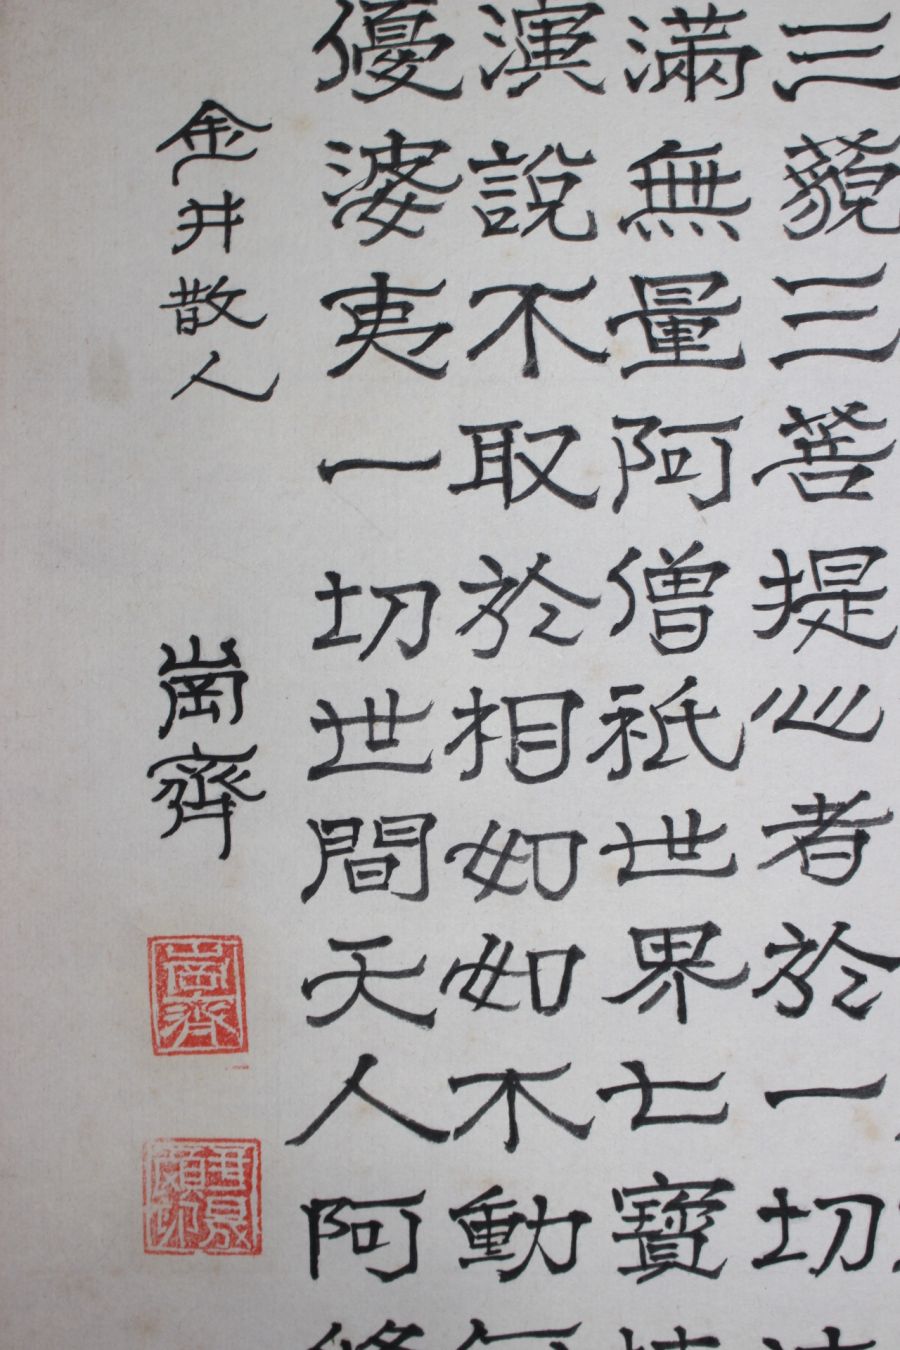 三藐三菩提心者於一切
滿無量阿僧祇世界七寶
演說不取於相如如不動
優婆夷一切世間天人阿
金井散人 崗齊
崗齊